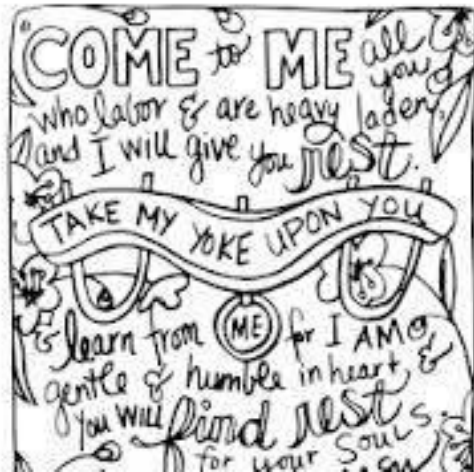 "COME to ME all you
who labor & are heavy laden,
and I will give you rest.
TAKE MY YOKE UPON YOU
& learn from ME for I AM
gentle & humble in heart, &
you will find rest
for your souls.